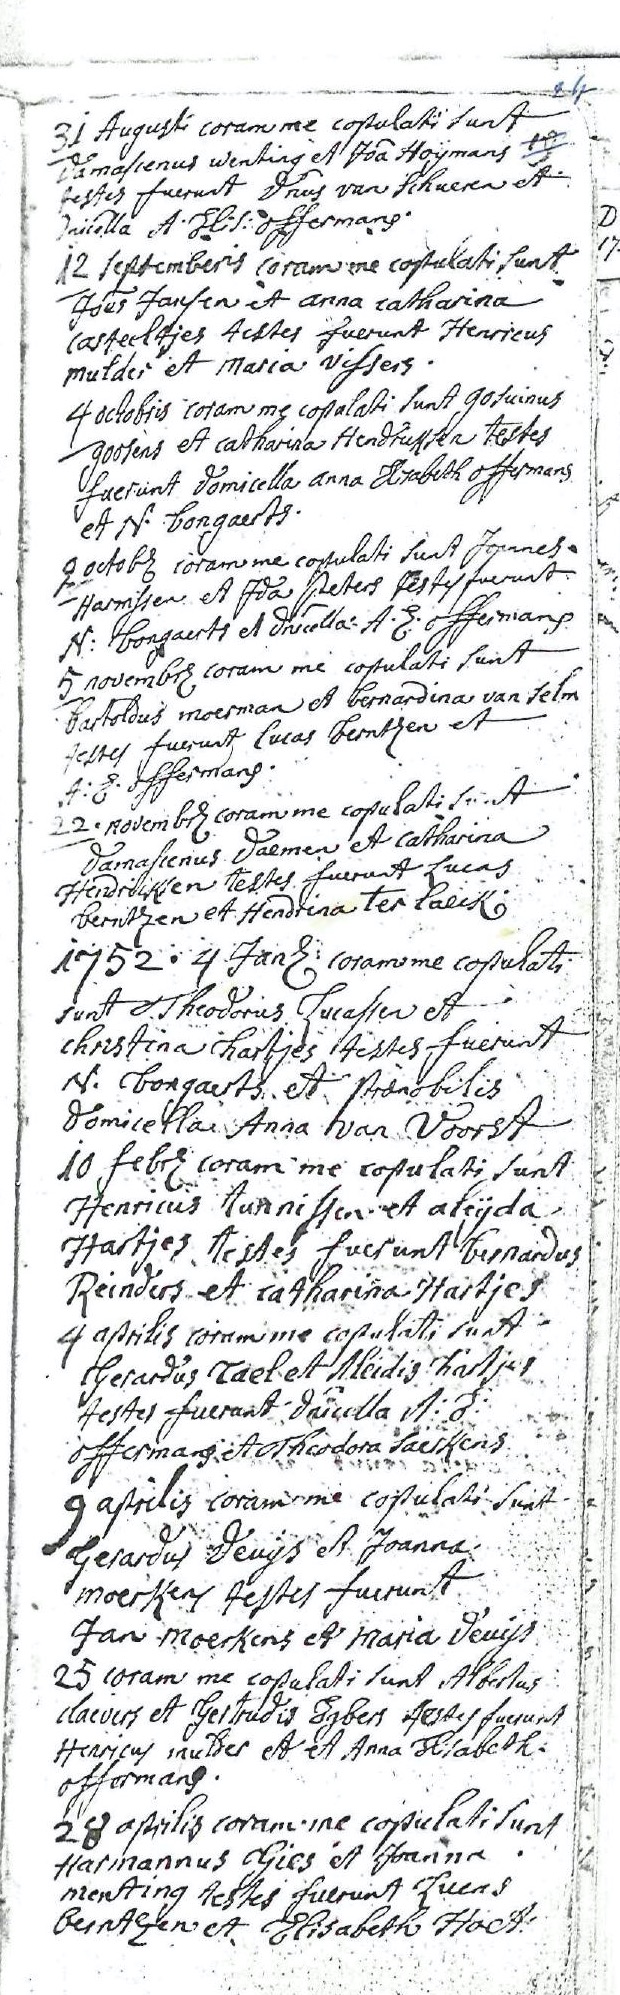 24
31 Augusti coram me copulati sunt
Damascenus wenting et Joa Hoijmans 18
testes fuerunt Dnus van Schueren et
Dnicella A. Elis: offermans.
12 septemberis coram me copulati sunt
Joes Jansen et anna catharina
casteeltjes testes fuerunt Henricus
mulder et maria vissers.
4 octobris coram me copulati sunt gosuinus
goosens et catharina Hendrixsen testes
fuerunt domicella anna Elisabeth offermans
et N. bongaerts.
octob coram me copulati sunt Joannes
Harmssen et Ida Peters testes fuerunt
N: bongaerts et dnicella: A. E. offermans
5 novemb coram me copulati sunt
bartoldus moerman et bernardina van selm
testes fuerunt lucas berntzen et
A: E. offermans.
22. novemb coram me copulati sunt
Damascenus Daemen et catharina
Hendricksen testes fuerunt Lucas
berntzen et Hendrina ter laeck;
1752. 4 Jan: coram me copulati
sunt Theodorus Lucassen et
christina hartjes testes fuerunt
N. bongaerts et prænobilis
domicella Anna van Voorst
10 feb coram me copulati sunt
Henricus tunnissen et aleijda
Hartjes testes fuerunt bernardus
Reinders et catharina Hartjes
4 aprilis coram me copulati sunt
Gerardus Tael et Aleidis hartjes
testes fuerunt dnicella A: E:
offermans et Theodora saerkens
9 aprilis coram me copulati sunt
Gerardus Deuijs et Joanna
moerkens testes fuerunt
Jan moerkens et maria deuijs
25 coram me copulati sunt Albertus
claevers et Gertrudis Egbers testes fuerunt
Henricus mulder et et Anna Elisabeth
offermans.
28 aprilis coram me copulati sunt
Harmannus Gies et Joanna
menting testes fuerunt Lucas
berntzen et Elisabeth Hoet.
D
17